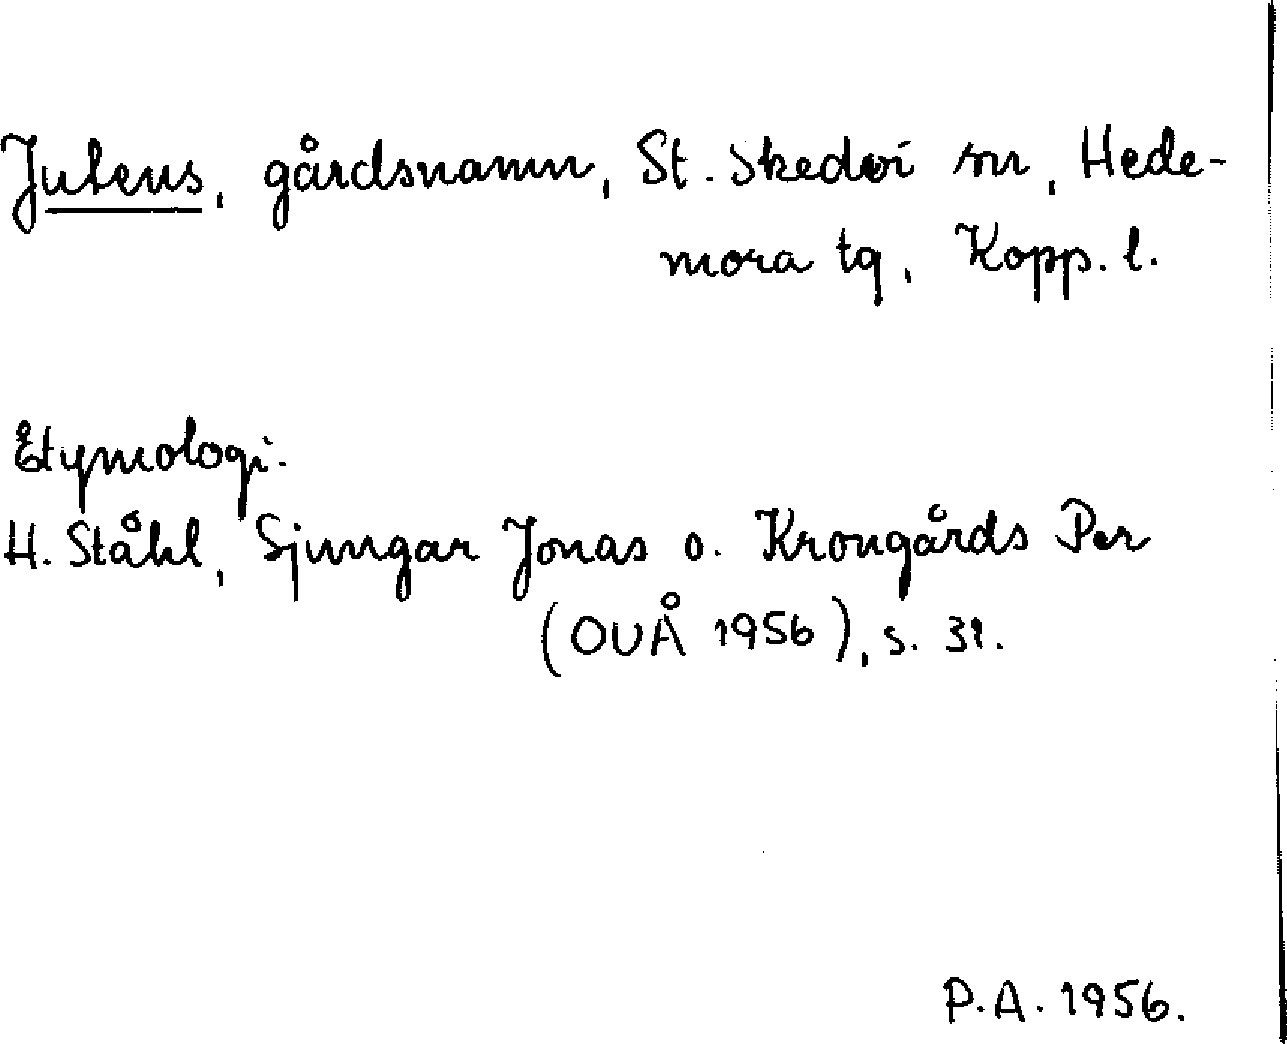 Jutens, gårdsnamn, St. Skedvi sn, Hede-
mora tg, Kopp. l.
Etymologi.
H. Ståhl, Sjungar Jonas o. Krongårds Per
(OUÅ 1956), s. 31.
P.A. 1956.